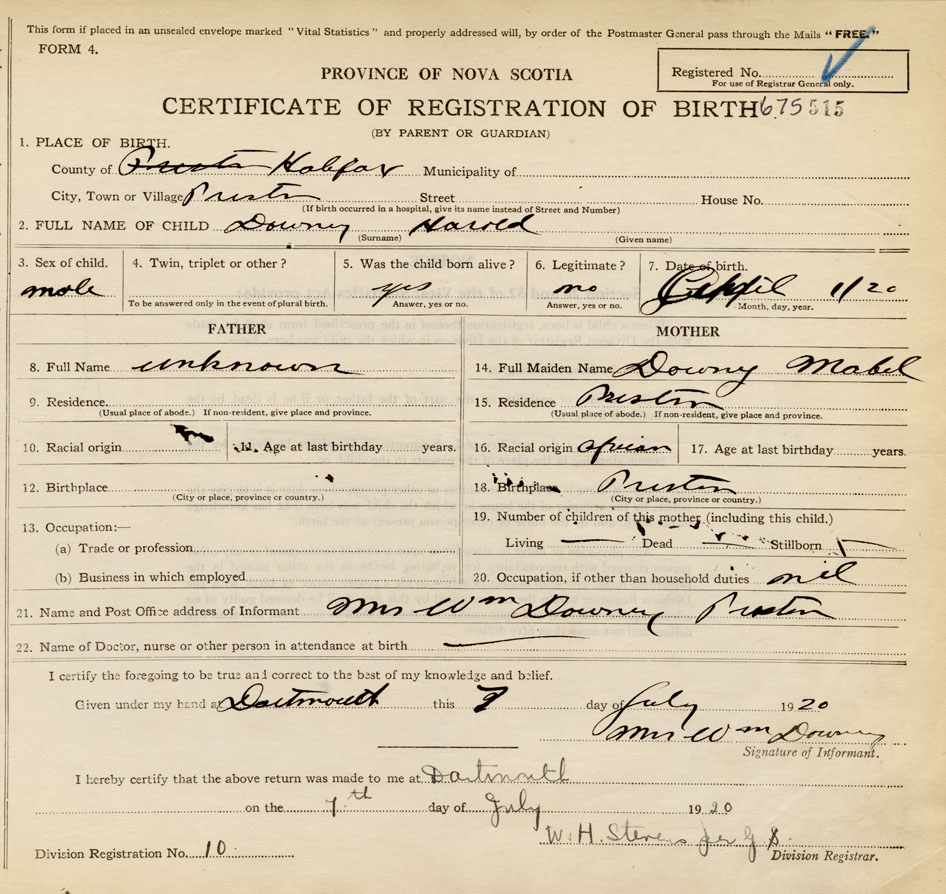 This form if placed in an unsealed envelope marked "Vital Statistics" and properly addressed will, by order of the Postmaster General pass through the Mails "FREE."
FORM 4.
Registered No.
For use of Registrar General only.
PROVINCE OF NOVA SCOTIA
CERTIFICATE OF REGISTRATION OF BIRTH 675515
(BY PARENT OR GUARDIAN)
1. PLACE OF BIRTH.
County of Preston Halifax Municipality of
City, Town or Village Preston Street House No.
(If birth occurred in a hospital, give its name instead of Street and Number)
2. FULL NAME OF CHILD Downey Harold
(Surname) (Given name)
3. Sex of child. 4. Twin, triplet or other? 5. Was the child born alive? 6. Legitimate? 7. Date of birth.
male yes no April 1/20
To be answered only in the event of plural birth. Answer, yes or no. Answer, yes or no. Month, day, year.
FATHER MOTHER
8. Full Name unknown 14. Full Maiden Name Downey Mabel
9. Residence. 15. Residence Preston
(Usual place of abode.) If non-resident, give place and province. (Usual place of abode.) If non-resident, give place and province.
10. Racial origin 11. Age at last birthday years. 16. Racial origin african 17. Age at last birthday years.
12. Birthplace 18. Birthplace Preston
(City or place, province or country.) (City or place, province or country.)
13. Occupation:— 19. Number of children of this mother (including this child.)
(a) Trade or profession Living — Dead — Stillborn
(b) Business in which employed 20. Occupation, if other than household duties nil
21. Name and Post Office address of Informant Mrs Wm Downey Preston
22. Name of Doctor, nurse or other person in attendance at birth —
I certify the foregoing to be true and correct to the best of my knowledge and belief.
Given under my hand at Dartmouth this 7 day of July 1920
Mrs Wm Downey
Signature of Informant.
I hereby certify that the above return was made to me at Dartmouth
on the 7th day of July 1920
W. H. Stevens per G S.
Division Registration No. 10 Division Registrar.